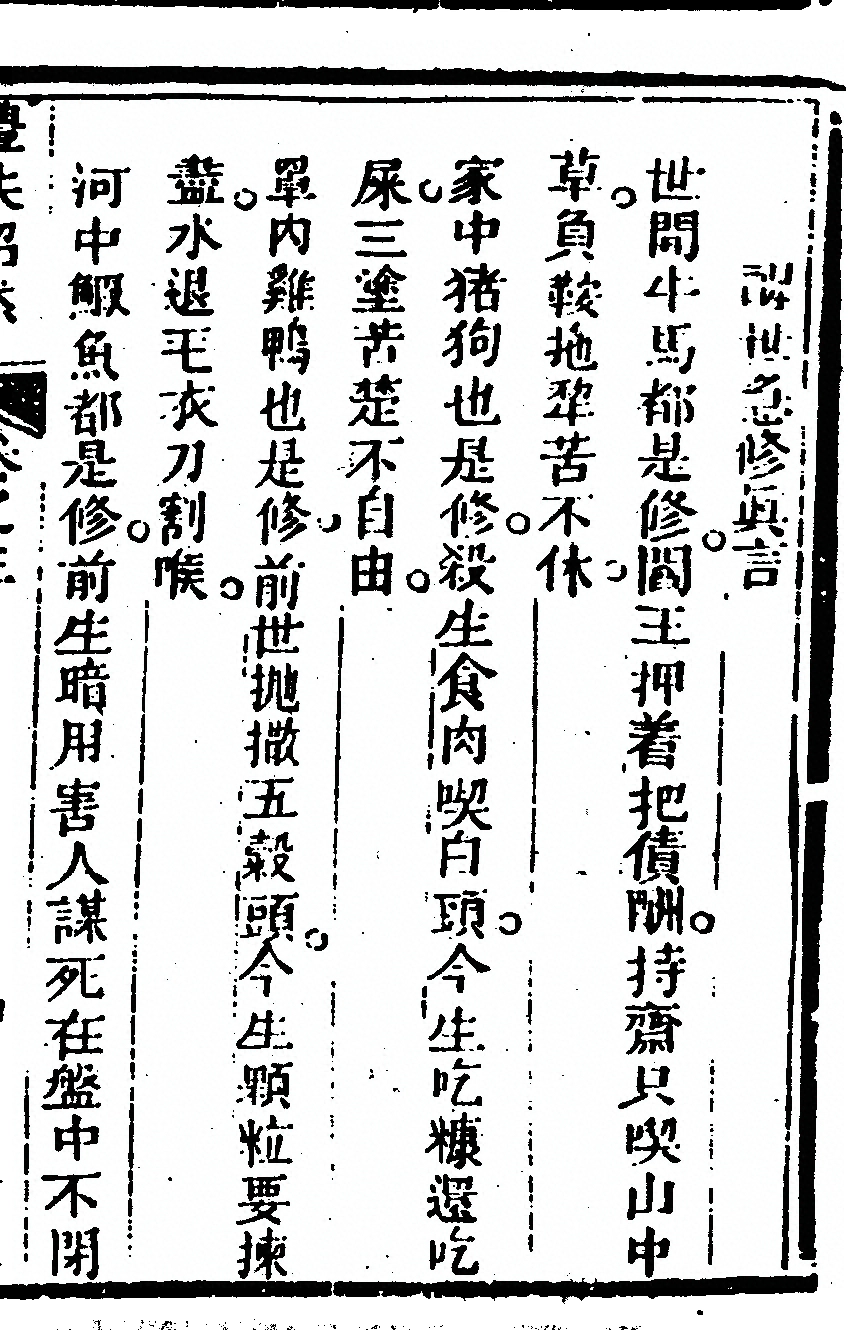 醒世急修眞言
世間牛馬都是修。閻王押着把債酬。持齋只喫山中
草。負鞍拖犂苦不休。
家中猪狗也是修。殺生食肉喫白頭。今生吃糠還吃
屎。三塗苦楚不自由。
罩内雞鴨也是修。前世拋撒五穀頭。今生顆粒要揀
盡。水退毛衣刀割喉。
河中鰕魚都是修。前生暗用害人謀死在盤中不閉